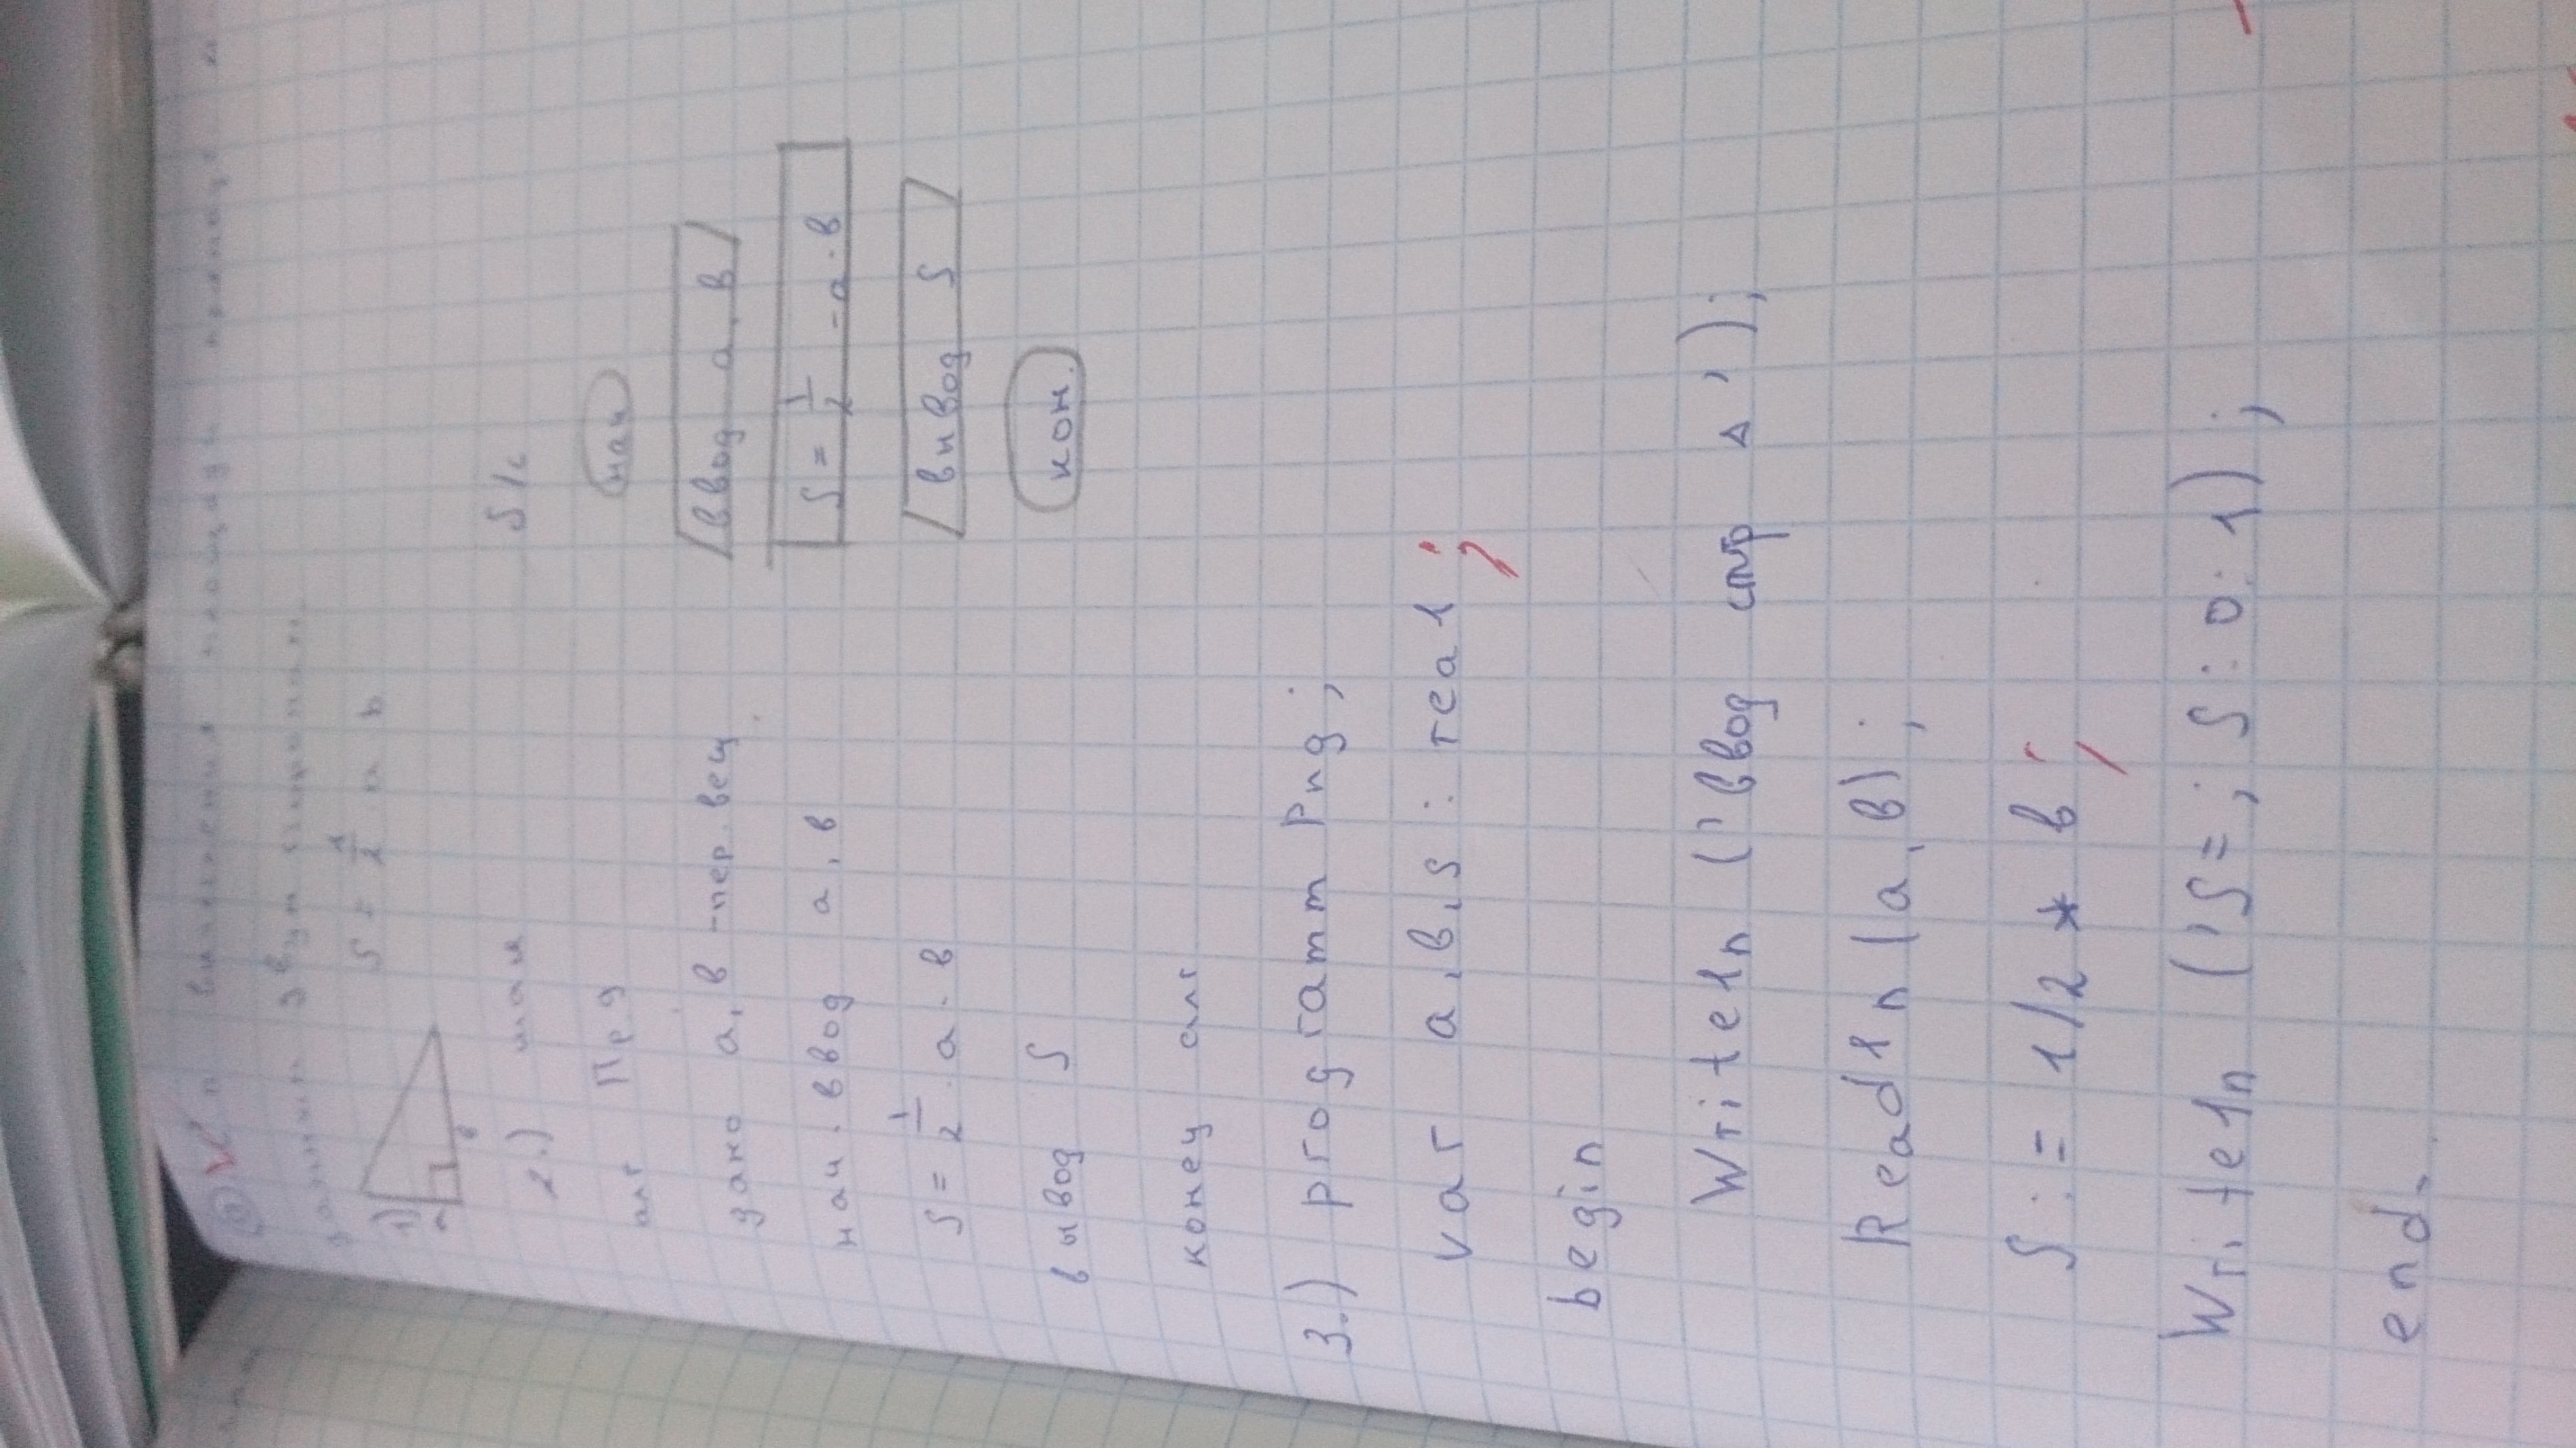 вычисления площади
данным двум сторонам.
S = 1/2 a b
1)
a
в
2.)
алг Пр д
дано а, в - пер. вещ.
нач. ввод а, в
S = 1/2 · а · в
вывод S
конец алг
нач
ввод а, в
S = 1/2 - а · в
вывод S
кон.
3.) programm Png;
var a, в, s : real ;
begin
Writeln ('ввод стор Δ');
Readln (a, в);
S := 1/2 * в ;
Writeln ('S= ; S : 0 : 1);
end.